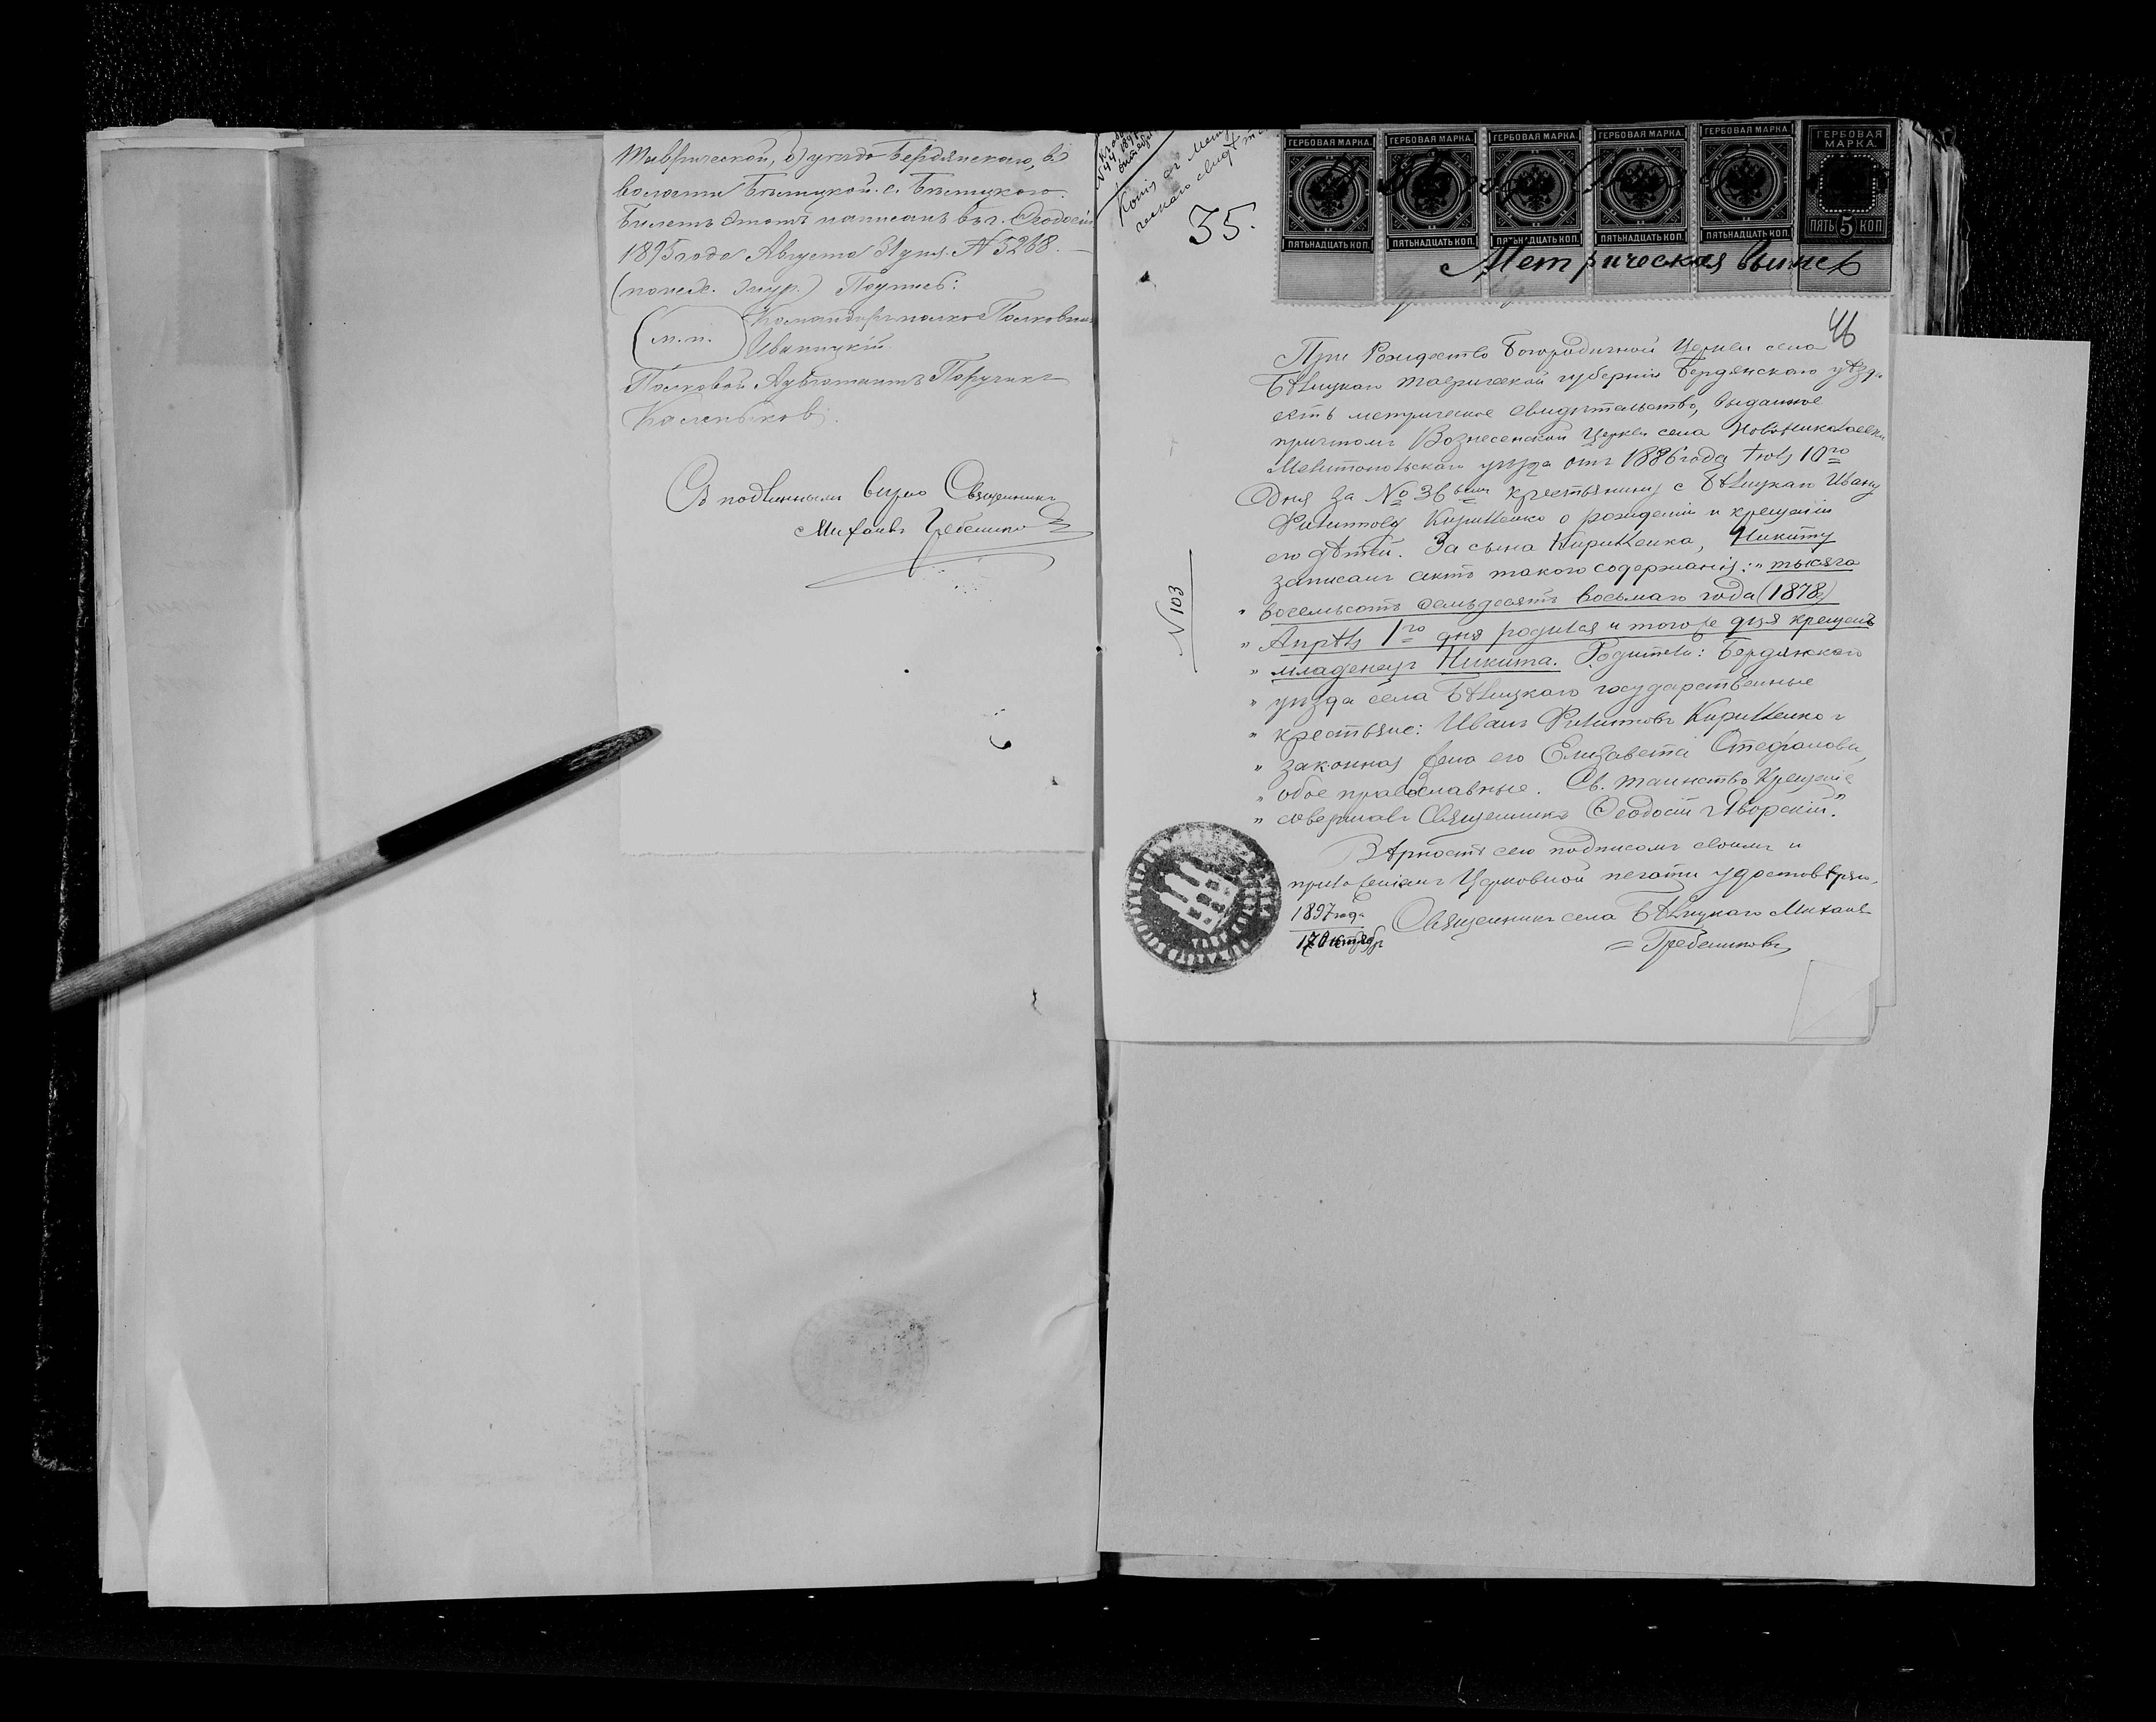 Таврической, б) уезда Бердянскаго, в)
волости Бѣлицкой. с. Бѣлицкого.
Билетъ этотъ написанъ въ г. Ѳеодосіи
1895 года Августа 31 дня. № 5268. —
Подпись:
(м. п.) Командиръ полка Полковникъ
Иваницкій
Полковой Адъютантъ Поручикъ
Съ подлиннымъ вѣрно Священникъ
Михаилъ
Копія съ
35.
ГЕРБОВАЯ МАРКА. ГЕРБОВАЯ МАРКА. ГЕРБОВАЯ МАРКА. ГЕРБОВАЯ МАРКА. ГЕРБОВАЯ МАРКА. ГЕРБОВАЯ МАРКА.
ПЯТЬНАДЦАТЬ КОП. ПЯТЬНАДЦАТЬ КОП. ПЯТЬНАДЦАТЬ КОП. ПЯТЬНАДЦАТЬ КОП. ПЯТЬНАДЦАТЬ КОП. ПЯТЬ 5 КОП
Метрическая выпись
46
При Рождество Богородичной Церкви села
Бѣлицкаго Таврической губерніи Бердянскаго уѣзда
есть метрическое свидѣтельство, выданное
причтомъ Вознесенской Церкви села Новониколаевки
Мелитопольскаго уѣзда отъ 1886 года Іюля 10го
дня за № 36 крестьянину с Бѣлицкаго Ивану
Филиппову Кириленко о рожденіи и крещеніи
его дѣтей. За сына Кириленка, Никиту
записанъ актъ такого содержанія: „тысяча
„ восемьсотъ семьдесятъ восьмаго года (1878)
„ Апрѣля 1го дня родился и того же дня крещенъ
„ младенецъ Никита. Родители: Бердянскаго
„ уѣзда села Бѣлицкаго государственные
„ крестьяне: Иванъ Филипповъ Кириленко и
„ законная жена его Елизавета Стефанова,
„ обое православные. Св. таинство Крещенія
„ совершалъ Священникъ Ѳеодосій Яворскій.“
№ 103
Вѣрность сего подписомъ своимъ и
приложеніемъ Церковной печати удостовѣряю.
1897 года
Октября
Священникъ села Бѣлицкаго Михаилъ
Гребенниковъ